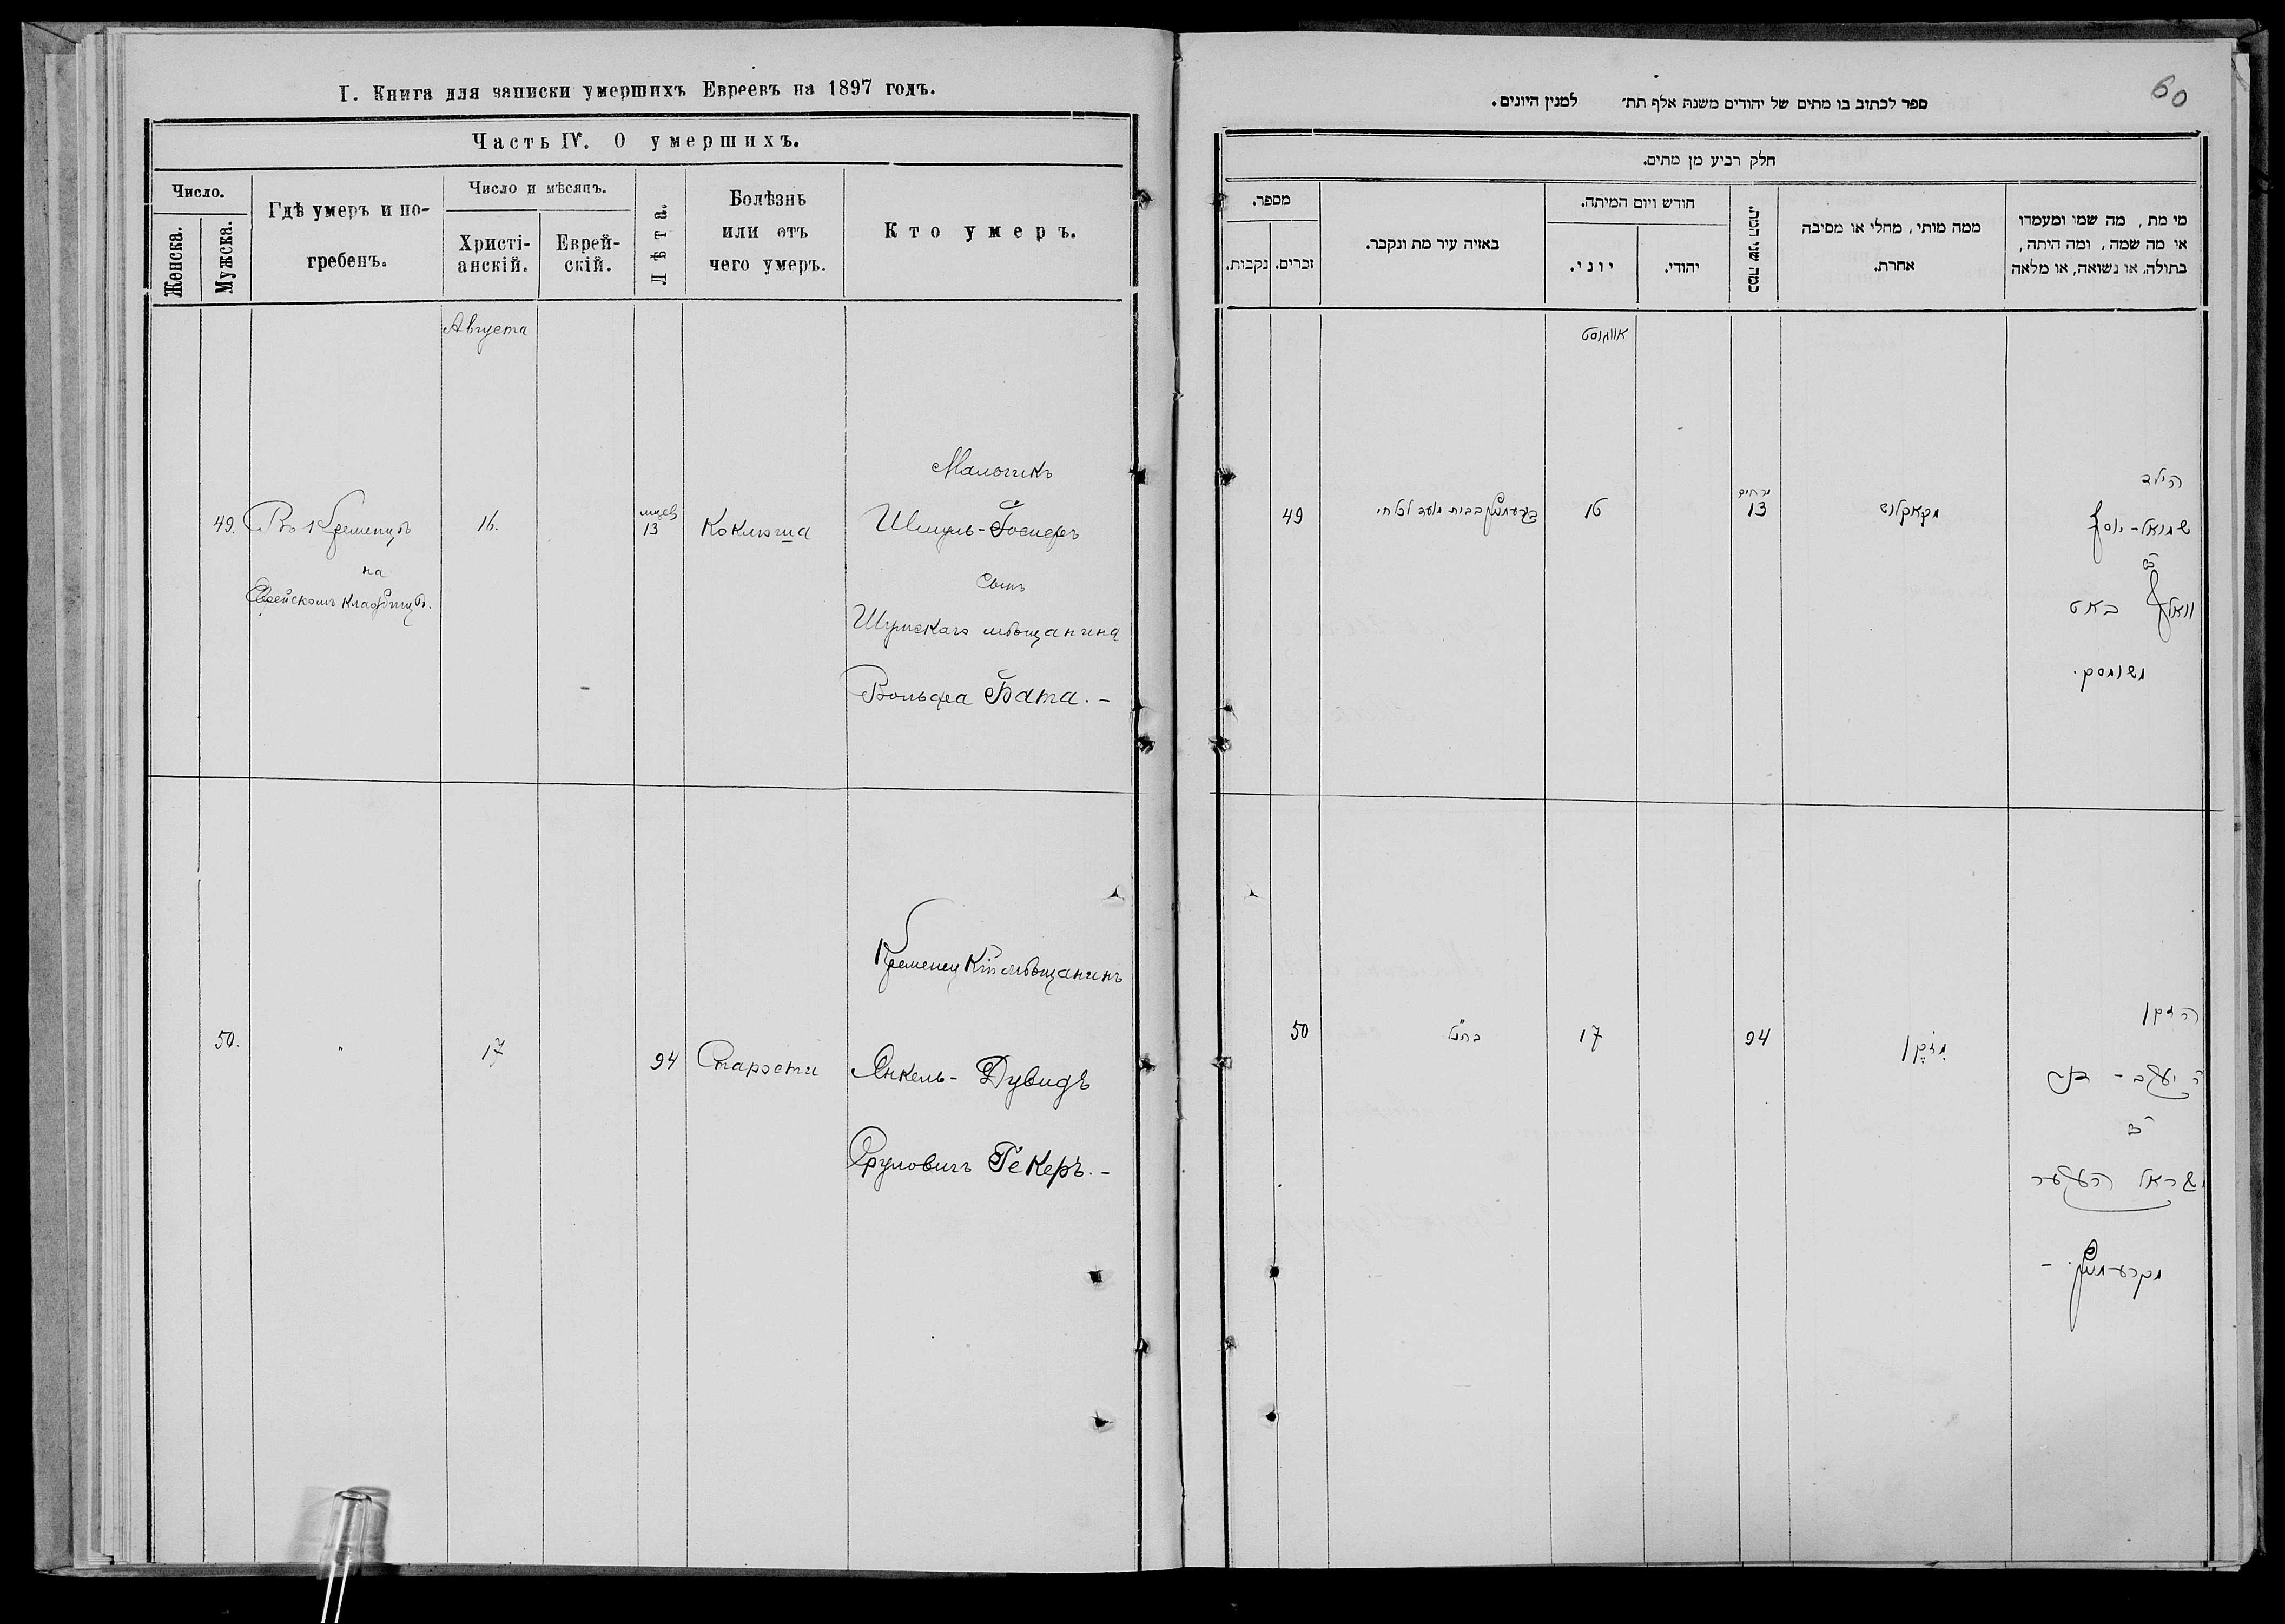 I. Книга для записки умершихъ Евреевъ на 1897 годъ.
Часть IV. О умершихъ.
Число.
Женска.
Мужска.
Гдѣ умеръ и по-
гребенъ.
Число и мѣсяцъ.
Христі-
анскій.
Еврей-
скій.
Лѣта.
Болѣзнь
или отъ
чего умеръ.
Кто умеръ.
Августа
49.
Въ Кременцѣ
на
Еврейскомъ кладбищѣ.
16.
13
Коклюша
Мальчикъ
Шмуль-Іосифъ
сынъ
Шумскаго мѣщанина
Вольфа Бата. –
50.
"
17
94
Старости
Кременецкій мѣщанинъ
Янкель-Дувидъ
Сруловичъ Гекеръ. –
60
ספר לכתוב בו מתים של יהודים משנת אלף תת׳ למנין היונים.
חלק רביע מן מתים.
מספר.
נקבות.
זכרים.
באזיה עיר מת ונקבר.
חודש ויום המיתה.
יוני.
יהודי.
כמה שני המת.
ממה מותי, מחלי או מסיבה
אחרת.
מי מת, מה שמו ומעמדו
או מה שמה, ומה היתה,
בתולה, או נשואה, או מלאה
אווגוסט
49
16
ירחים
13
מקאקלוש
הילד
שמואל-יוסף
ב"ר
וואלף באט
משומסק.
50
כנ"ל
17
94
מזקן
הזקן
ר' יעקב-דוד
ב"ר
ישראל העקער
מקרעמניץ. –